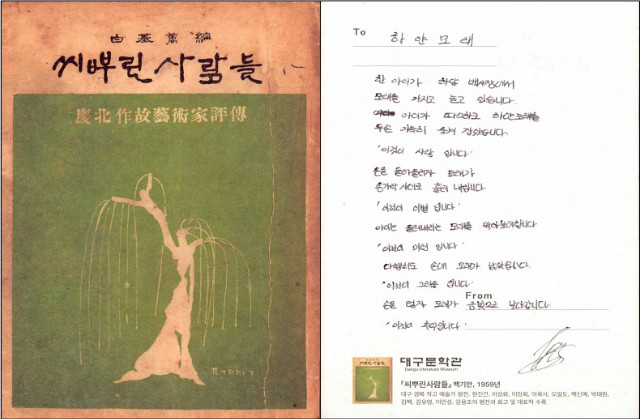 白基萬編
씨뿌린 사람들
慶北作故藝術家評傳
To 하얀 모래
한 아이가 하얀 백사장에서
모래를 가지고 놀고 있습니다.
아이가 따스하고 하얀모래를
두손 가득히 움켜 잡았습니다.
"이것이 사랑 입니다"
손을 들어올리자 모래가
손가락 사이로 흘러 내립니다.
"이것이 이별 입니다"
아이는 흘러내리는 모래를 막아보려합니다
"이것이 미련 입니다"
다행히도 손에 모래가 남았습니다.
"이것이 그리움 입니다"
From
손을 털자 모래가 금빛으로 날아갑니다.
"이것이 추억입니다"
대구문학관
Daegu Literature Museum
『씨뿌린사람들』 백기만, 1959년
대구·경북 작고 예술가 평전. 현진건, 이상화, 이장희, 이육사, 오일도, 백신애, 박태원,
김백, 김유영, 이인성, 김용조의 평전과 회고 및 대표작 수록